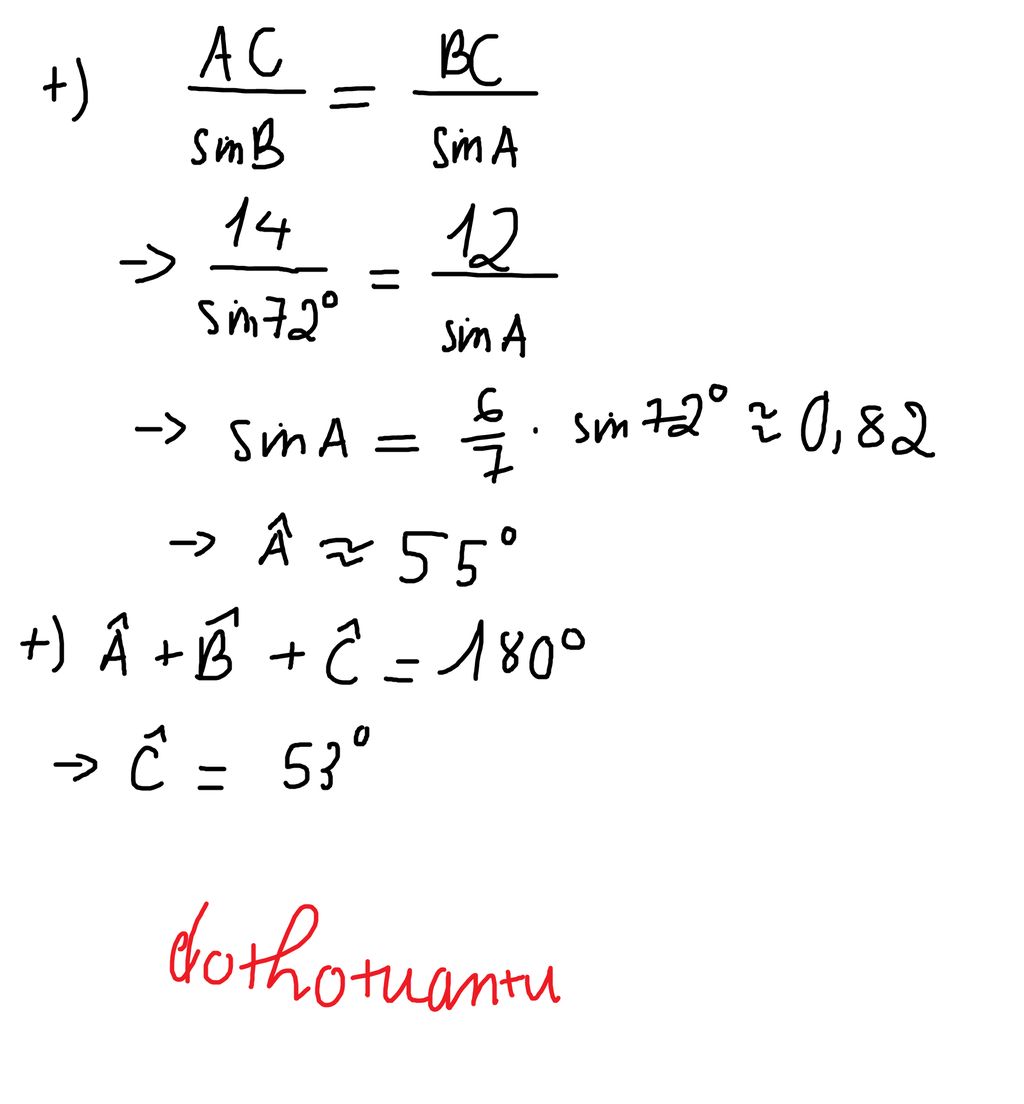 +) AC/sinB = BC/sinA
-> 14/sin72° = 12/sinA
-> sinA = 6/7 . sin72° ≈ 0,82
-> Â ≈ 55°
+) Â + B̂ + Ĉ = 180°
-> Ĉ = 53°
dothotuantu